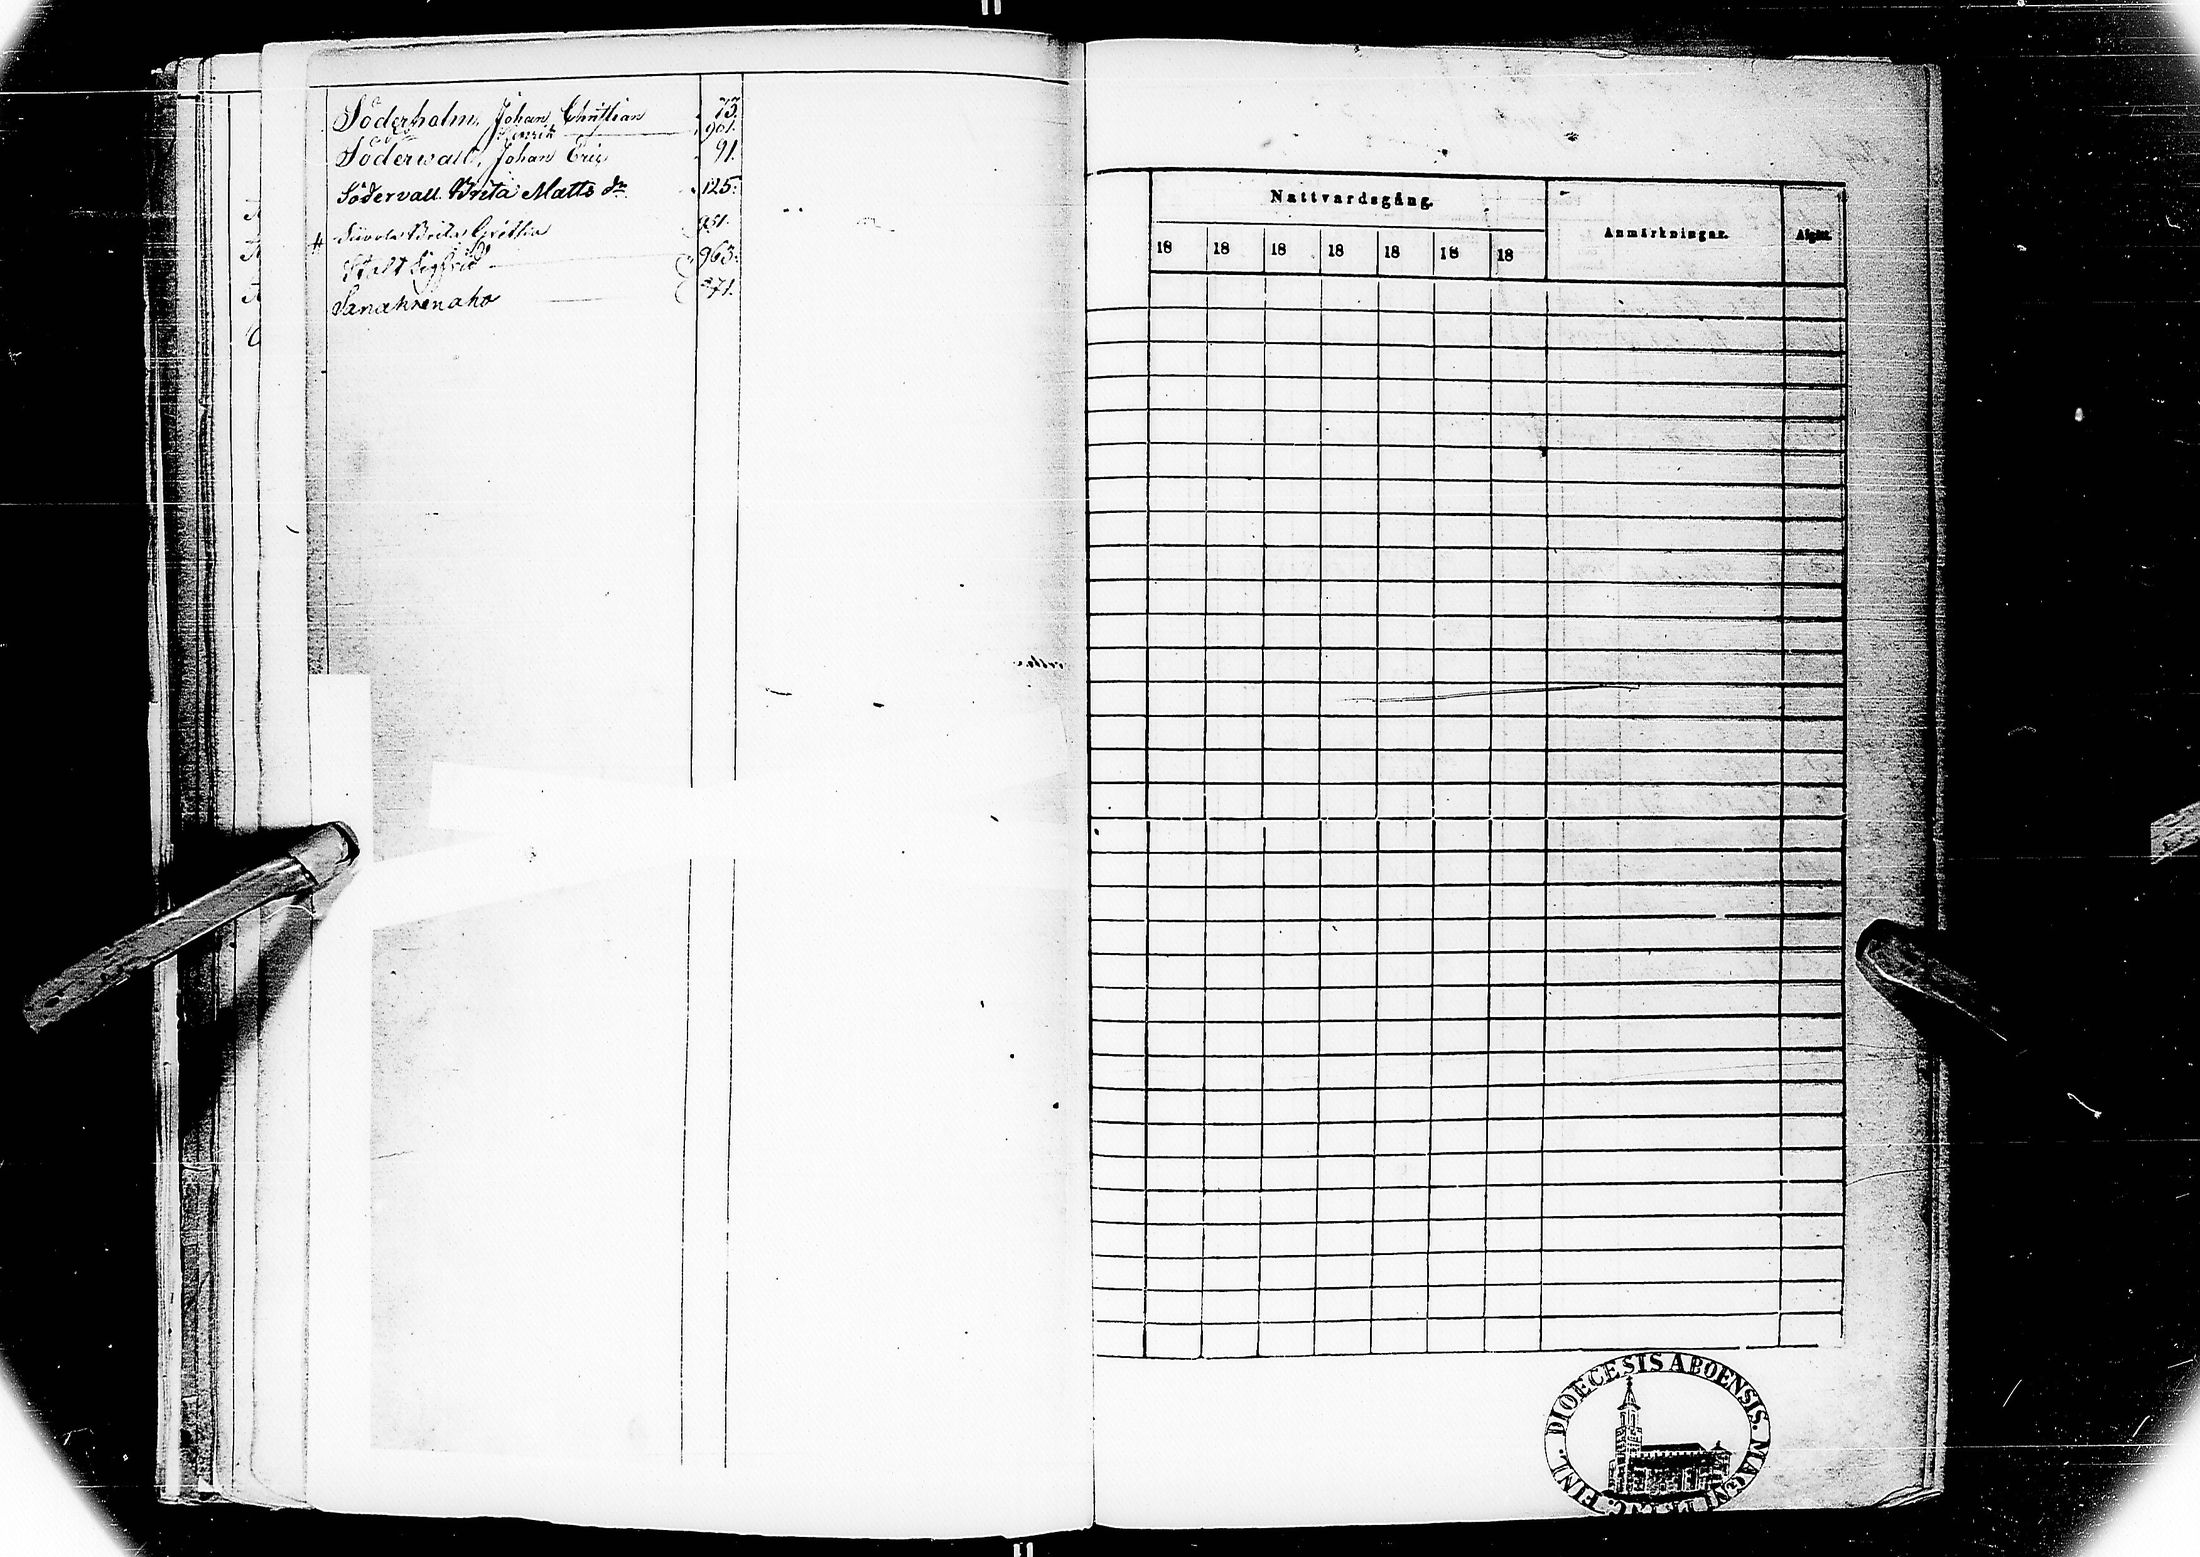 Söderholm, Johan Christian 73.
Henrik 901.
Söderwall, Johan Eric 91.
Södervall Brita Matts dr 125.
Brita 951.
Stalt Sigfrid 963.
971.
Nattvardsgång.
Anmärkningar.
Afgått.
18 18 18 18 18 18 18
DIOECESIS ABOENSIS. MAGNI PRINC. FINL.